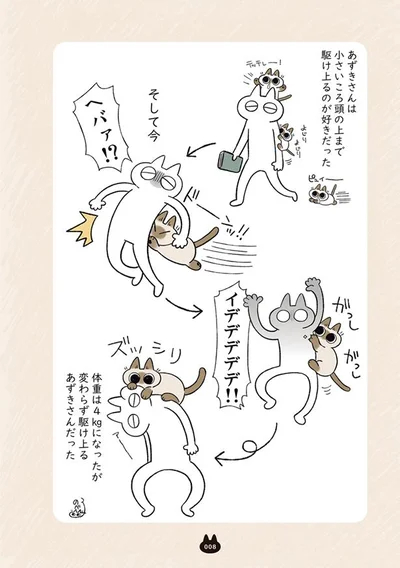 あずきさんは
小さいころ頭の上まで
駆け上るのが好きだった
テッテレー！
よじり
よじり
ピュイー
そして今
ヘバァ!?
ドーン
がっし
がっし
イデデデデデ!!
ズッシリ
体重は４kgになったが
変わらず駆け上る
あずきさんだった
008